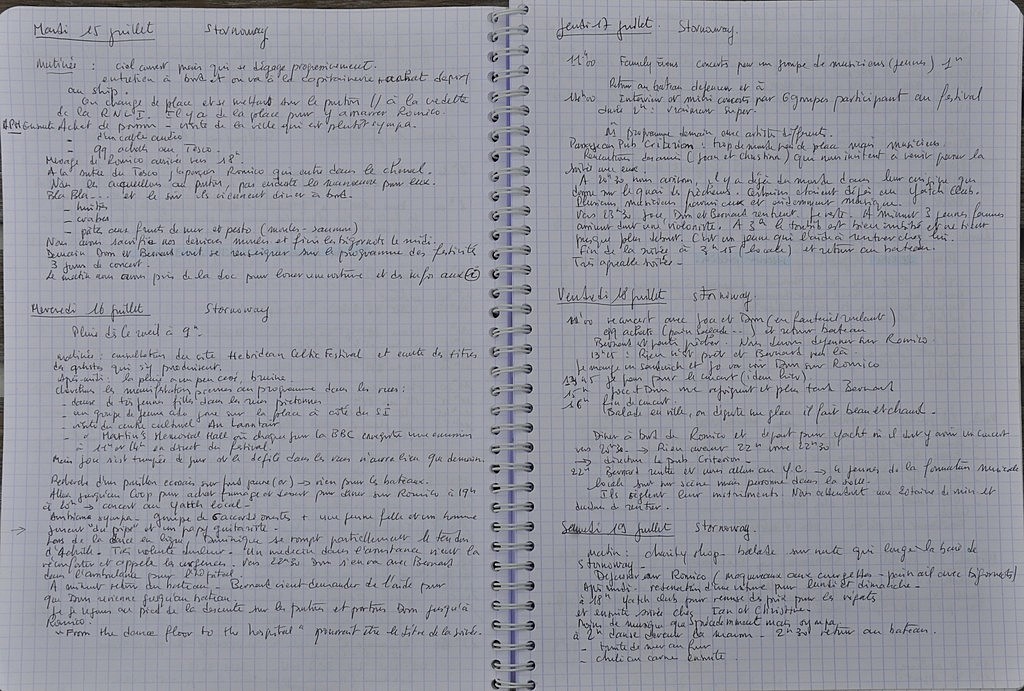 Mardi 15 juillet Stornoway
Matinée : ciel couvert mais qui se dégage progressivement.
entretien à bord et on va à la capitainerie + achat
au ship.
On change de place et se mettant sur le ponton // à la vedette
de la RNLI. Il y a de la place pour y amarrer Romico.
APM Achat de poisson - visite de la ville qui est plutôt sympa.
- câble audio
- qq achats au Tesco.
Message de Romico arrivée vers 18h.
A la sortie du Tesco, j'aperçois Romico qui entre dans le chenal.
Nous les accueillons au ponton, pas évidente la manœuvre pour eux.
Bla Bla... et le soir ils viennent diner à bord.
- huitres
- crabes
- pâtes aux fruits de mer et pesto (moules - saumon)
Nous avons sacrifié nos dernières moules et fini les bigornots le midi.
Demain Dom et Bernard vont se renseigner sur le programme des festivités
3 jours de concert.
Le matin nous avons pris de la doc pour louer une voiture et des infos aux
Mercredi 16 juillet Stornoway
Pluie dès le réveil à 9h.
matinée : consultation du site Hebridean Celtic Festival et écoute des titres
des artistes qui s'y produisent.
Après-midi : la pluie a un peu cessé, bruine.
cherchons les manifestations prévues au programme dans les rues :
- danse de très jeunes filles dans les rues piétonnes
- un groupe de jeunes ado joue sur la place à côté du SI
- visite du centre culturel An Lanntair
- " Martin's Memorial Hall où chaque jour la BBC enregistre une émission
à 11h ou 14h en direct du festival.
Mais Jou s'est trompée de jour et le défilé dans les rues n'aura lieu que demain.
Recherche d'un pavillon écossais sur fond jaune (or) → rien pour les bateaux.
Allons jusqu'au Coop pour achat fromage et dessert pour diner sur Romico à 19h
à 20h → concert au Yatch local -
Ambiance sympa - groupe de accordéonistes + une jeune fille et un homme
jouent "du pipe" et un papy guitariste.
Lors de la danse en ligne, Dominique se rompt partiellement le tendon
d'Achille. Très violente douleur. Un médecin dans l'assistance vient la
réconforter et appelle les urgences. Vers 22h30 Dom s'en va avec Bernard
dans l'ambulance pour l'hôpital.
A minuit retour du bateau - Bernard vient demander de l'aide pour
que Dom vienne jusqu'au bateau.
Je les rejoins au pied de la descente sur le ponton et portons Dom jusqu'à
Romico.
"From the dance floor to the hospital" pourrait être le titre de la soirée.
Jeudi 17 juillet. Stornoway.
11h00 Family concerts par un groupe de musiciens (jeunes) 1h
Retour au bateau déjeuner et à
14h00 Interview et mini concerts par 6 groupes participant au festival
durée 2h : vraiment super.
programme demain avec artistes différents.
Pub Criterion : trop de monde, pas de place mais musiciens.
Rencontrons (Jean et Christina) qui nous invitent à venir passer la
soirée avec eux.
A 20h30 nous arrivons, il y a déjà du monde dans leur cuisine qui
donne sur le quai des pêcheurs. Certains étaient déjà au Yatch Club.
Plusieurs musiciens parmi eux et musique.
Vers 23h30 Jou, Dom et Bernard rentrent, je reste. A minuit 3 jeunes femmes
arrivent dont une violoniste. A 3h la est bien imbibé et ne tient
presque plus debout. C'est un jeune qui l'aide à rentrer chez lui.
Fin de la soirée à 3h15 (locale) et retour au bateau.
Très agréable soirée -
Vendredi 18 juillet Stornoway.
11h00 concert avec Jou et Dom (en fauteuil roulant)
qq achats (pain salade...) et retour bateau
Bernard est parti pêcher. Nous devons déjeuner sur Romico.
13h15 : Rien n'est prêt et Bernard pas là.
Je mange un sandwich et Jo va voir Dom sur Romico
13h45 Je pars pour le concert (idem hier)
15h Jou et Dom me rejoignent et plus tard Bernard
16h fin de concert.
Balade en ville, on déguste une glace il fait beau et chaud.
Diner à bord de Romico et départ pour Yacht où il doit y avoir un concert
vers 20h30. → Rien avant 22h voire 22h30
→ direction le Pub Criterion -
22h Bernard rentre et nous allons au Y.C. → 4 jeunes de la formation musicale
locale sont sur scène mais personne dans la salle.
Ils règlent leur instruments. Nous attendons une 20taine de min et
décidons de rentrer.
Samedi 19 juillet Stornoway
Matin : charity shop - balade sur route qui longe la baie de
Stornoway -
Déjeuner sur Romico (maquereaux aux courgettes - pain ail avec bigorneaux)
Après-midi - réservation d'une voiture pour lundi et dimanche -
à 18h Yatch club pour remise des prix pour les régates
et ensuite soirée chez Ian et Christine.
Moins de musique que précédemment mais sympa.
à 2h danse devant la maison - 2h30 retour au bateau.
- truite de mer au four
- chili con carne ensuite.